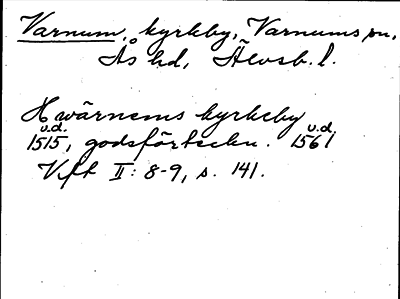 Varnum, kyrkby, Varnums sn,
Ås hd, Älvsb. l.
Hwärnems kyrkeby
u.d. u.d.
1515, godsförteckn. 1561
Vft II: 8-9, s. 141.